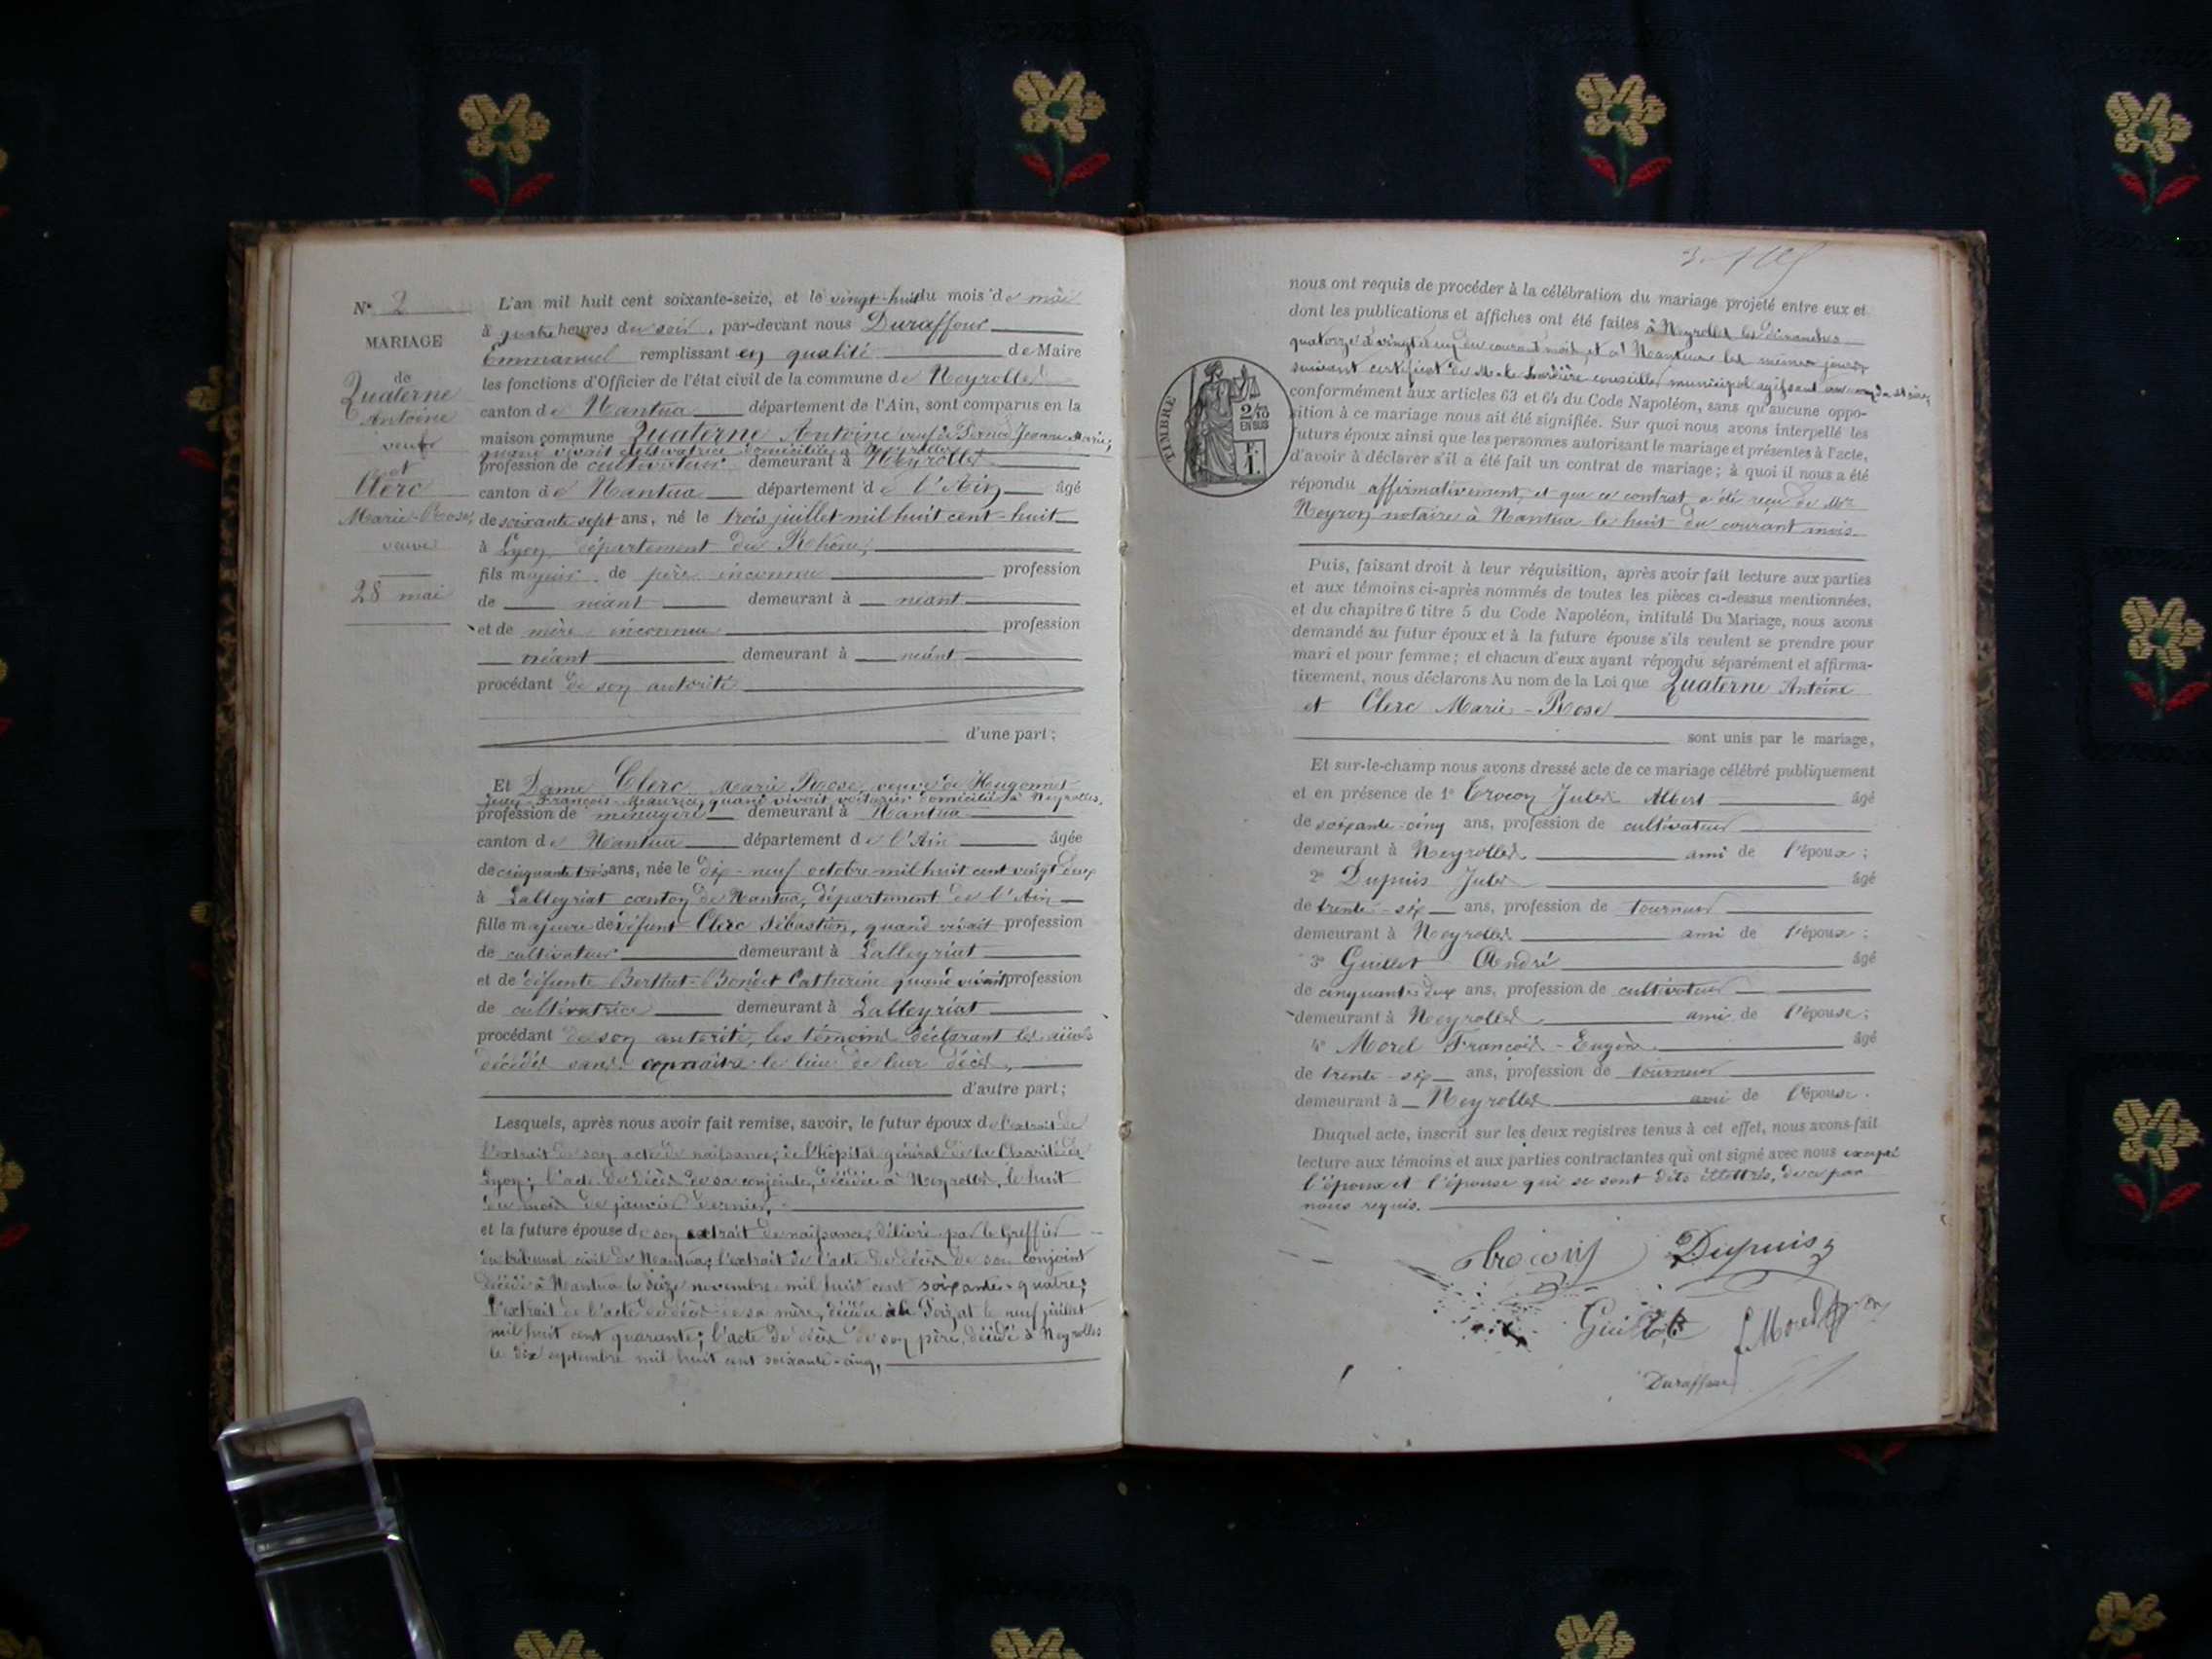 N° 2
MARIAGE
de
Quaterne
Antoine
veuf
et
Clerc
Marie-Rose,
veuve
28 mai
L'an mil huit cent soixante-seize, et le vingt-huit du mois de mai
à quatre heures du soir, par-devant nous Duraffour
Emmanuel remplissant en qualité de Maire
les fonctions d'Officier de l'état civil de la commune de Neyrolles
canton de Nantua département de l'Ain, sont comparus en la
maison commune Quaterne Antoine veuf de Jeanne Marie,
quand vivait cultivatrice domiciliée à Neyrolles
profession de cultivateur demeurant à Neyrolles
canton de Nantua département de l'Ain âgé
de soixante sept ans, né le trois juillet mil huit cent-huit
à Lyon, département du Rhône,
fils majeur de père inconnu profession
de néant demeurant à néant
et de mère inconnue profession
néant demeurant à néant
procédant de son autorité
d'une part;
Et Dame Clerc Marie Rose, veuve de Hugonnet
Jean-François-Maurice, quand vivait voiturier domicilié à Neyrolles,
profession de ménagère demeurant à Nantua
canton de Nantua département de l'Ain âgée
de cinquante trois ans, née le dix-neuf octobre mil huit cent vingt deux
à Lalleyriat canton de Nantua, département de l'Ain
fille majeure de défunt Clerc Sébastien, quand vivait profession
de cultivateur demeurant à Lalleyriat
et de défunte Berthet-Bondet Catherine quand vivait profession
de cultivatrice demeurant à Lalleyriat
procédant de son autorité, les témoins déclarant les aïeuls
décédés sans connaître le lieu de leur décès,
d'autre part;
Lesquels, après nous avoir fait remise, savoir, le futur époux de l'extrait de
l'extrait de son acte de naissance, de l'hôpital général de la Charité de
Lyon; l'acte de décès de sa conjointe, décédée à Neyrolles, le huit
du mois de janvier dernier,
et la future épouse de son extrait de naissance, délivré par le Greffier
du tribunal civil de Nantua; l'extrait de l'acte de décès de son conjoint
décédé à Nantua le seize novembre mil huit cent soixante-quatre;
l'extrait de l'acte de décès de sa mère, décédée au Poizat le neuf juillet
mil huit cent quarante; l'acte de décès de son père, décédé à Neyrolles
le dix septembre mil huit cent soixante-cinq,
nous ont requis de procéder à la célébration du mariage projeté entre eux et
dont les publications et affiches ont été faites à Neyrolles les dimanches
quatorze et vingt et un du courant mois, et à Nantua les mêmes jours,
suivant certificat de M. conseiller municipal agissant au
conformément aux articles 63 et 64 du Code Napoléon, sans qu'aucune oppo-
sition à ce mariage nous ait été signifiée. Sur quoi nous avons interpellé les
futurs époux ainsi que les personnes autorisant le mariage et présentes à l'acte,
d'avoir à déclarer s'il a été fait un contrat de mariage; à quoi il nous a été
répondu affirmativement, et que ce contrat a été reçu de Mr
Neyron notaire à Nantua le huit du courant mois.
TIMBRE
2/10
EN SUS
F.
1.
Puis, faisant droit à leur réquisition, après avoir fait lecture aux parties
et aux témoins ci-après nommés de toutes les pièces ci-dessus mentionnées,
et du chapitre 6 titre 5 du Code Napoléon, intitulé Du Mariage, nous avons
demandé au futur époux et à la future épouse s'ils veulent se prendre pour
mari et pour femme; et chacun d'eux ayant répondu séparément et affirma-
tivement, nous déclarons Au nom de la Loi que Quaterne Antoine
et Clerc Marie-Rose
sont unis par le mariage,
Et sur-le-champ nous avons dressé acte de ce mariage célébré publiquement
et en présence de 1° Crocon Jules Albert âgé
de soixante-cinq ans, profession de cultivateur
demeurant à Neyrolles ami de l'époux;
2° Dupuis Jules âgé
de trente-six ans, profession de tourneur
demeurant à Neyrolles ami de l'époux;
3° Guillot André âgé
de cinquante-deux ans, profession de cultivateur
demeurant à Neyrolles ami de l'épouse;
4° Morel François-Eugène âgé
de trente-six ans, profession de tourneur
demeurant à Neyrolles ami de l'épouse.
Duquel acte, inscrit sur les deux registres tenus à cet effet, nous avons fait
lecture aux témoins et aux parties contractantes qui ont signé avec nous excepté
l'époux et l'épouse qui se sont dits illettrés, de ce par
nous requis.
Dupuis
Guillot
Morel
Duraffour